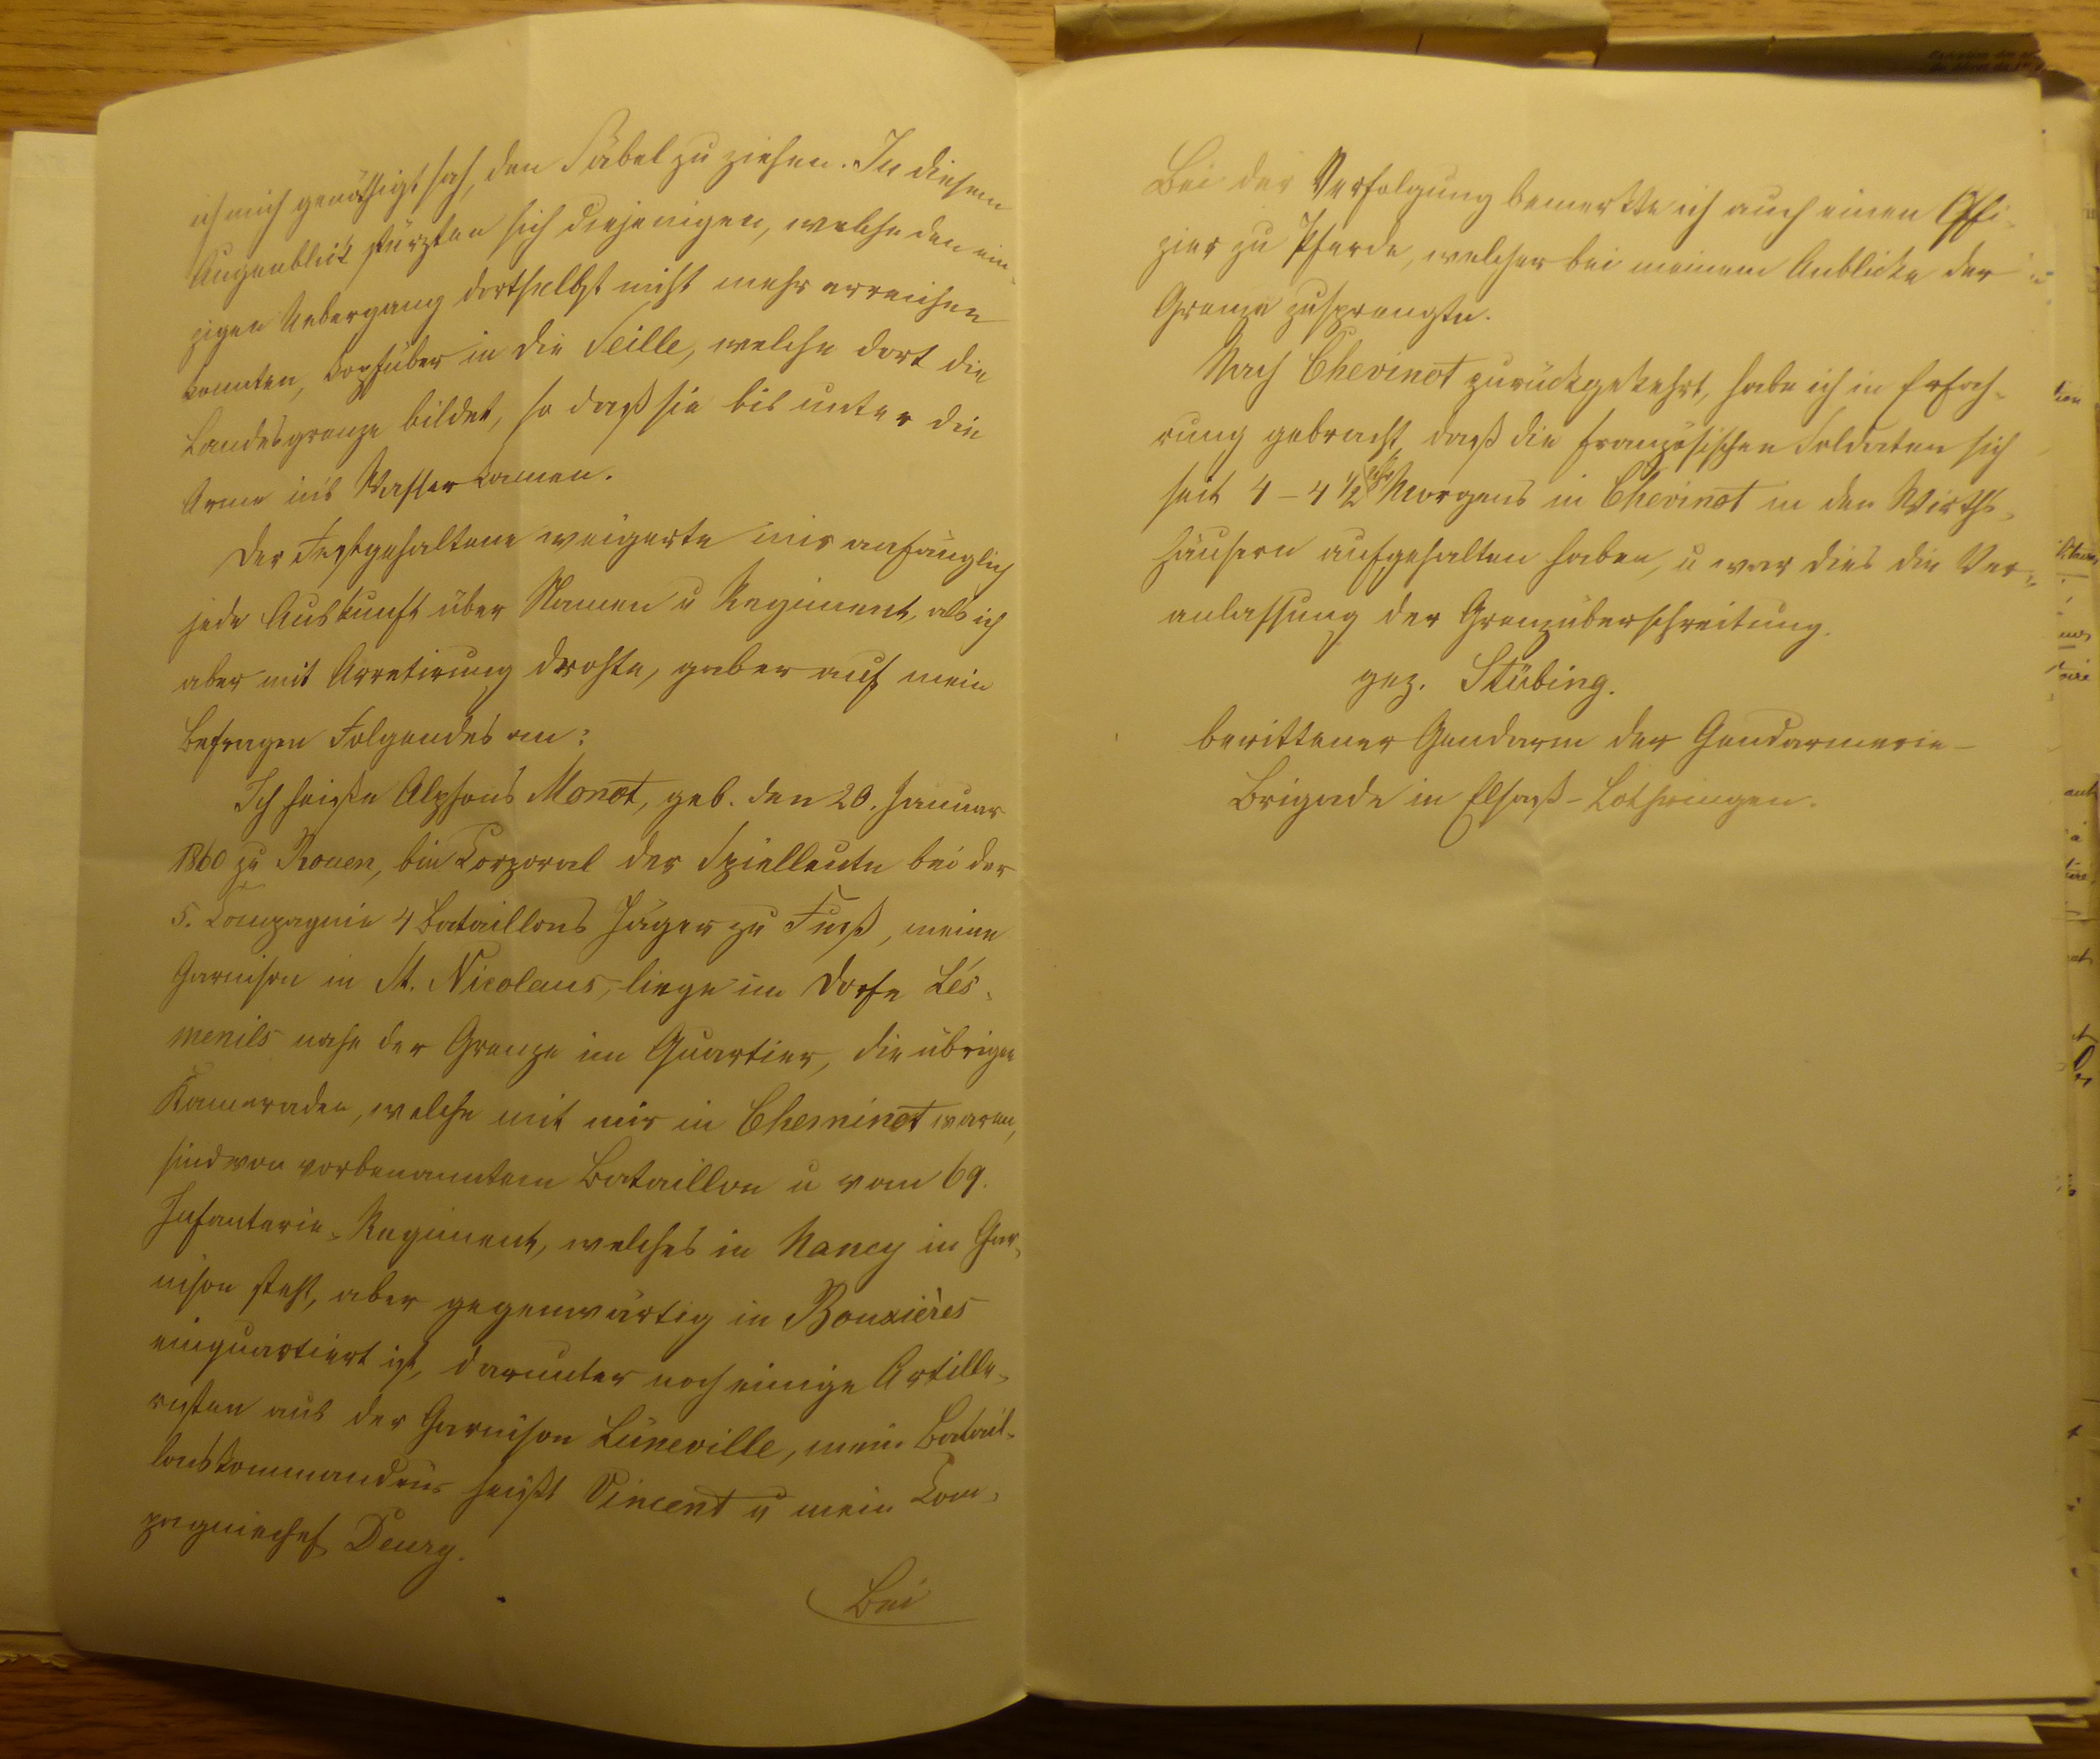 ich mich genöthigt sah, den Säbel zu ziehen. In diesem
Augenblick stürzten sich diejenigen, welche den ein-
zigen Uebergang dortselbst nicht mehr erreichen
konnten, kopfüber in die Seille, welche dort die
Landesgrenze bildet, so daß sie bis unter die
Arme in's Wasser kamen.
Der Festgehaltene weigerte mir anfänglich
jede Auskunft über Namen u Regiment, als ich
aber mit Arretirung drohte, gab er auf mein
Befragen Folgendes an:
Ich heiße Alphons Monot, geb. den 20. Januar
1860 zu Rouen, bin Corporal der Spielleute bei der
5. Compagnie 4 Bataillons Jäger zu Fuß, meine
Garnison in St. Nicolaus, liege im Dorfe Lés-
menils nahe der Grenze im Quartier, die übrigen
Kameraden, welche mit mir in Cheminot waren,
sind von vorbenanntem Bataillon u vom 69.
Infanterie-Regiment, welches in Nancy in Gar-
nison steht, aber gegenwärtig in Bouxières
einquartiert ist, darunter noch einige Artille-
risten aus der Garnison Lüneville, mein Batail-
lonskommandeur heißt Vincent u mein Com-
pagniechef Deury.
Bei
Bei der Verfolgung bemerkte ich auch einen Offi-
zier zu Pferde, welcher bei meinem Anblicke der
Grenze zusprengte.
Nach Cheminot zurückgekehrt, habe ich in Erfah-
rung gebracht, daß die französischen Soldaten sich
seit 4 - 4 1/2 Uhr Morgens in Cheminot in den Wirths-
häusern aufgehalten haben, u war dies die Ver-
anlassung der Grenzüberschreitung.
gez. Stübing.
berittener Gendarm der Gendarmerie-
Brigade in Elsaß-Lothringen.